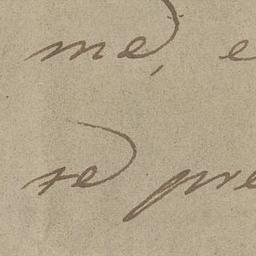 me, e
se pre